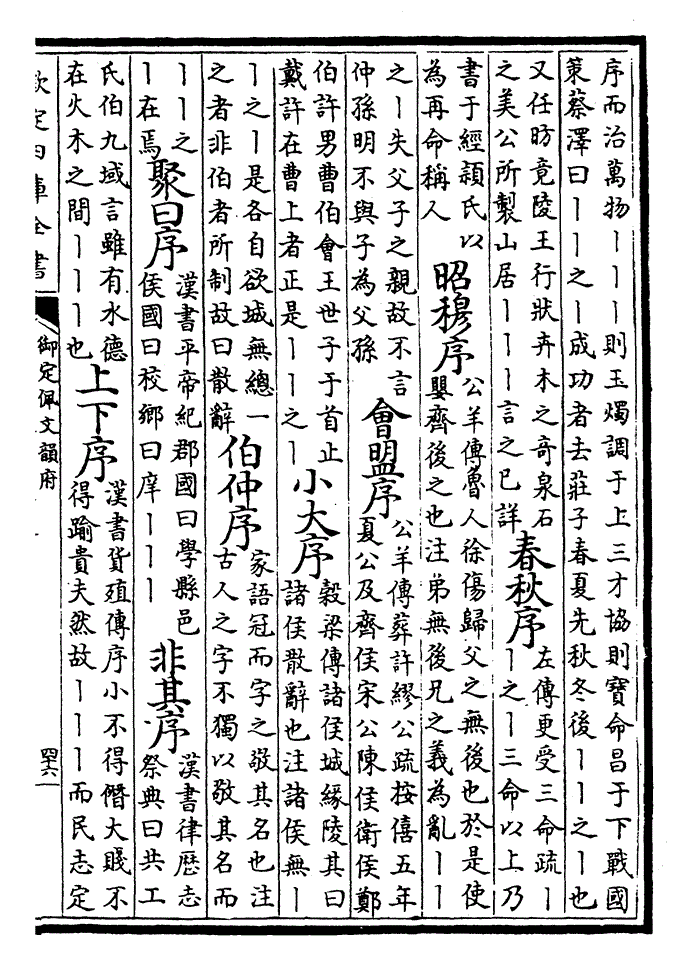 序而治萬物丨丨丨則玉燭調于上三才協則寶命昌于下戰國
策蔡澤曰丨丨之丨成功者去莊子春夏先秋冬後丨丨之丨也
又任昉竟陵王行狀卉木之奇泉石
之美公所製山居丨丨丨言之已詳
春秋序
左傳更受三命疏丨
丨之丨三命以上乃
書于經潁氏以
為再命稱人
昭穆序
公羊傳魯人徐傷歸父之無後也於是使
嬰齊後之也注弟無後兄之義為亂丨丨
之丨失父子之親故不言
仲孫明不與子為父孫
會盟序
公羊傳葬許繆公疏按僖五年
夏公及齊侯宋公陳侯衛侯鄭
伯許男曹伯會王世子于首止
戴許在曹上者正是丨丨之丨
小大序
穀梁傳諸侯城緣陵其曰
諸侯散辭也注諸侯無丨
丨之丨是各自欲城無總一
之者非伯者所制故曰散辭
伯仲序
家語冠而字之敬其名也注
古人之字不獨以敬其名而
丨丨之
丨在焉
聚曰序
漢書平帝紀郡國曰學縣邑
侯國曰校鄉曰庠丨丨丨
非其序
漢書律歷志
祭典曰共工
氏伯九域言雖有水德
在火木之間丨丨丨也
上下序
漢書貨殖傳序小不得僭大賤不
得踰貴夫然故丨丨丨而民志定
欽定四庫全書
御定佩文韻府
罕六